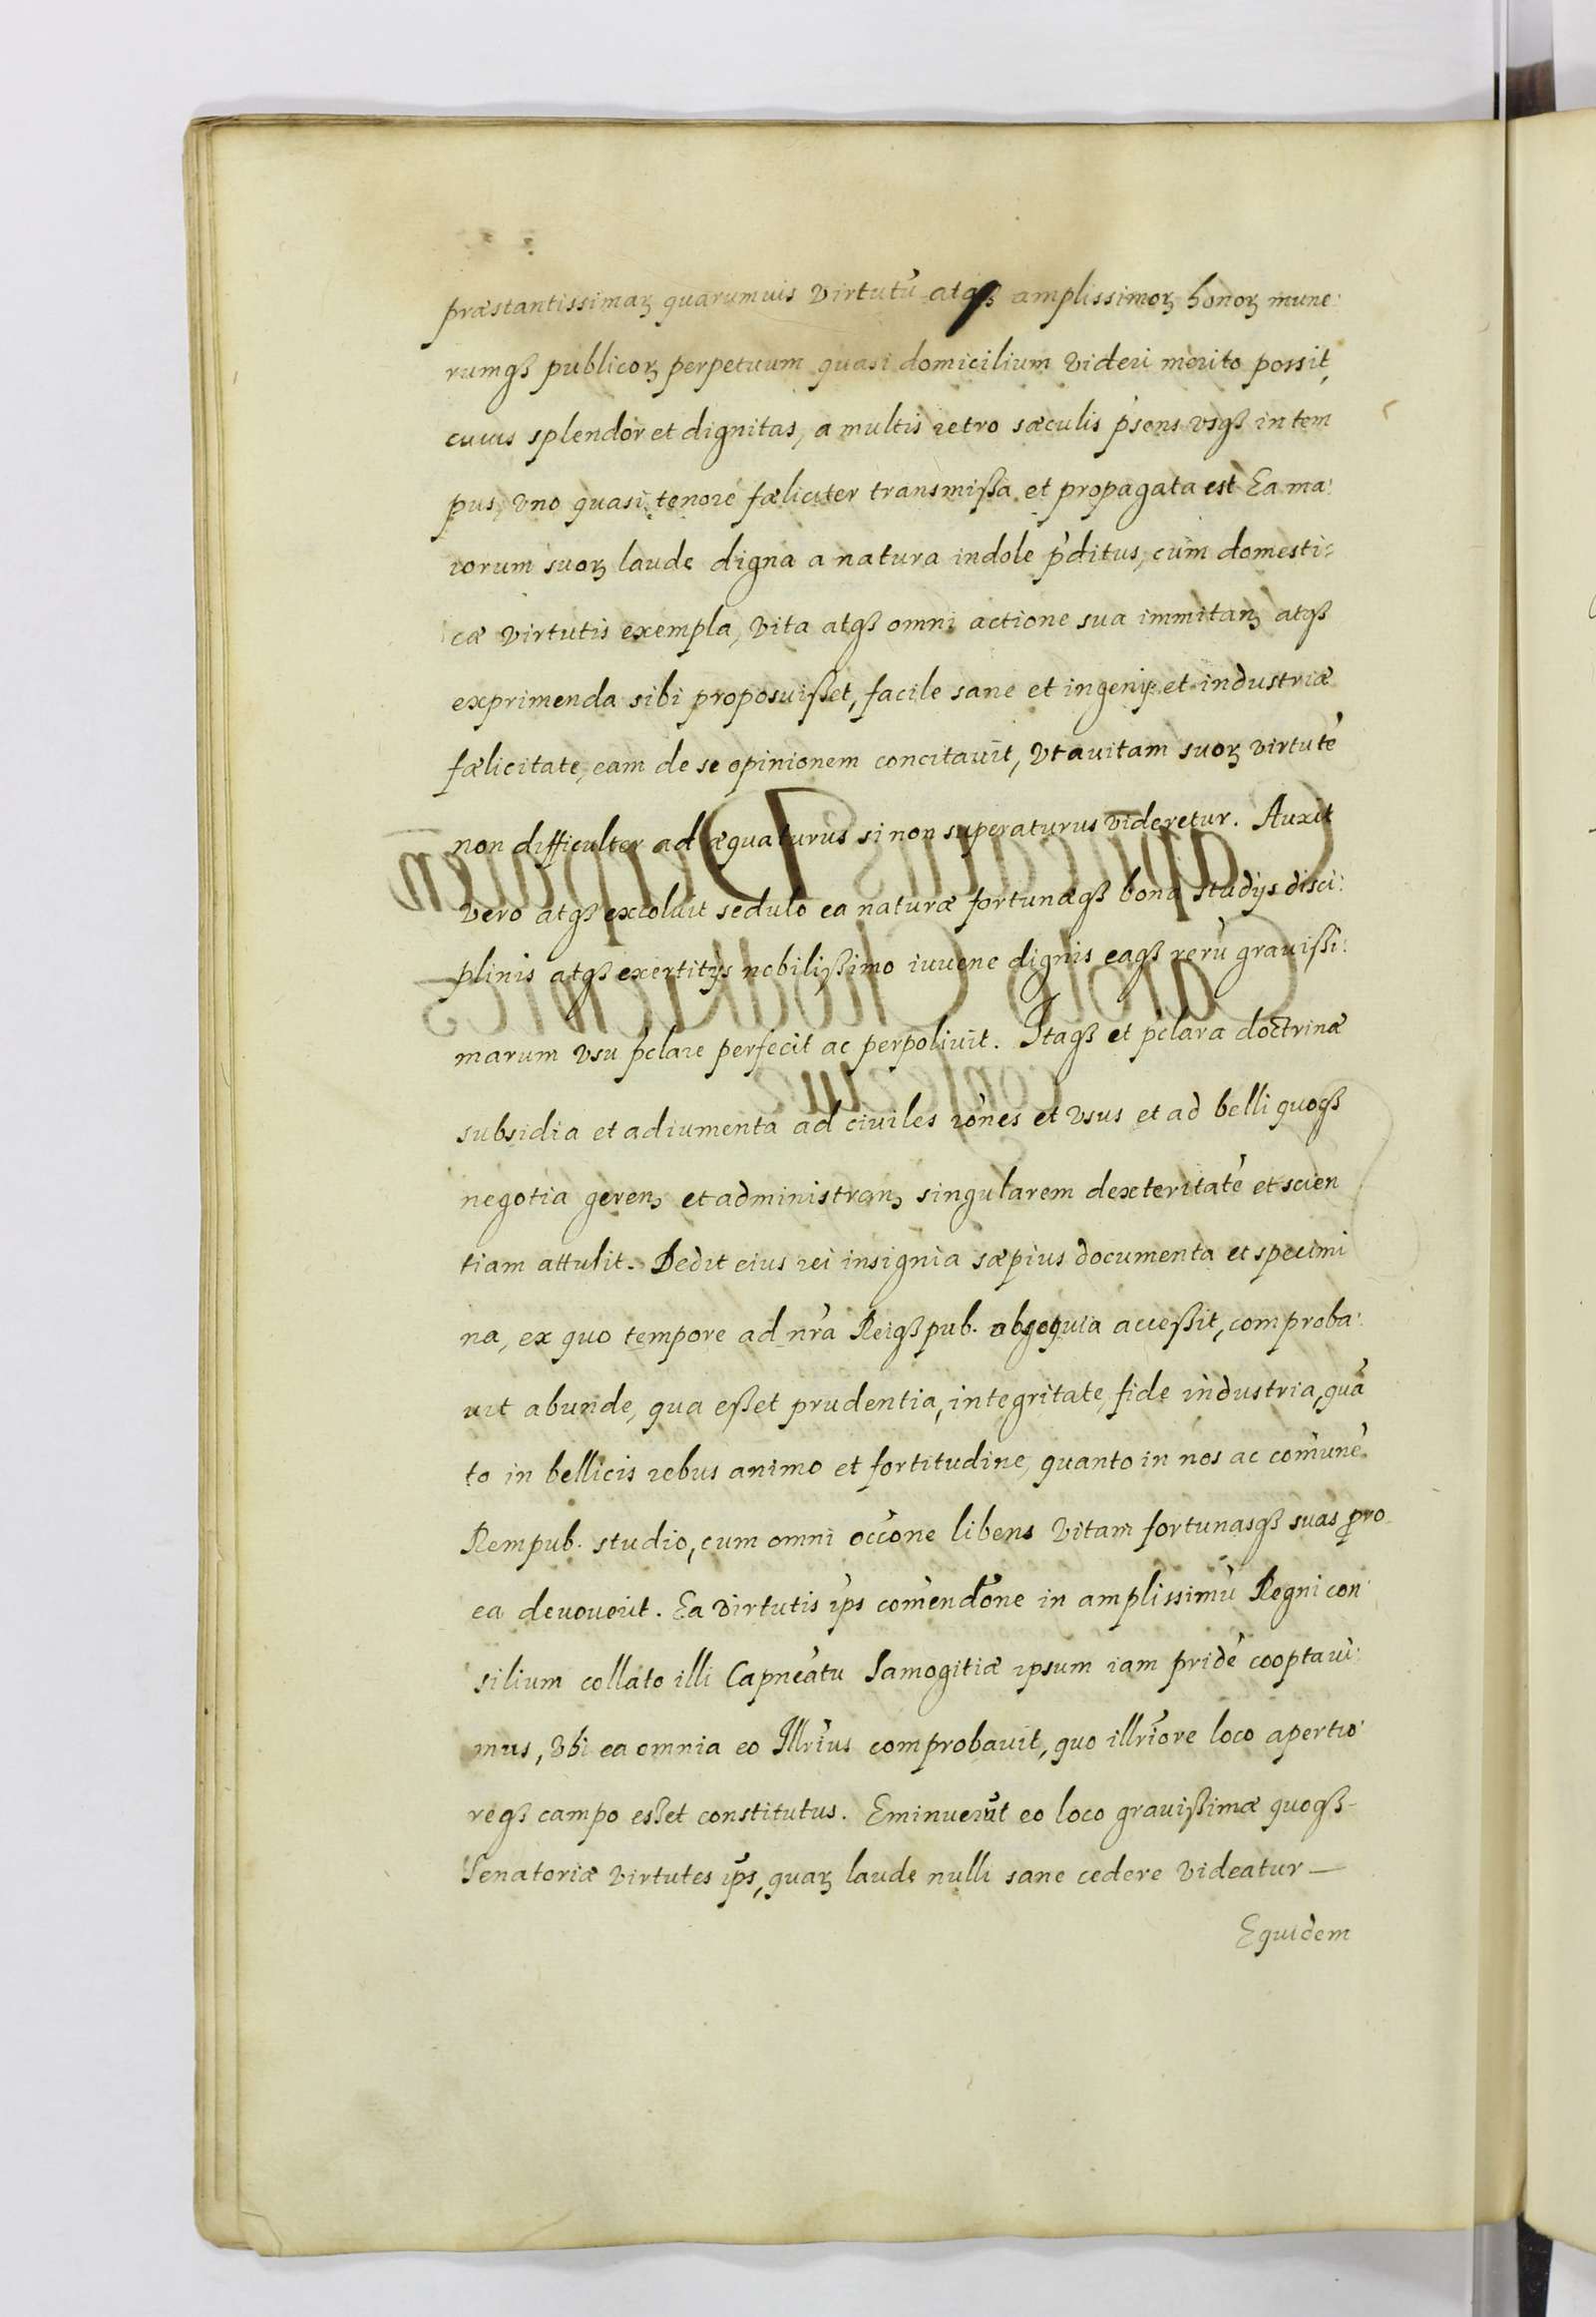 præstantissimaꝝ quarumuis virtutū atqꝫ amplissimoꝝ honoꝝ mune:
rumqꝫ publicoꝝ perpetuum quasi domicilium videri merito possit,
cuius splendor et dignitas, a multis retro sæculis p̄sens vsqꝫ in tem
pus, vno quasi tenore fæliciter transmissa et propagata est Ea ma:
iorum suoꝝ laude digna a natura indole p̄ditus, cum domesti:
cæ virtutis exempla, vita atqꝫ omni actione sua immitanꝫ atqꝫ
exprimenda sibi proposuisset, facile sane et ingenij et industriæ
fælicitate, eam de se opinionem concitauit, vt auitam suoꝝ virtutē
non difficulter adæquaturus si non superaturus videretur. Auxit
vero atqꝫ excoluit sedulo ea naturæ fortunæqꝫ bona studijs disci:
plinis atqꝫ exertitijs nobilissimo iuuene dignis eaqꝫ rerū grauissi:
marum vsu p̄clare perfecit ac perpoliuit. Itaqꝫ et p̄clara doctrinæ
subsidia et adiumenta ad ciuiles rōnes et vsus et ad belli quoqꝫ
negotia gerenꝫ et administranꝫ singularem dexteritatē et scien
tiam attulit. Dedit eius rei insignia sæpius documenta et specimi
na, ex quo tempore ad nr̄a Reiqꝫ pub. obsequia accessit, comproba:
uit abunde, qua esset prudentia, integritate, fide industria, quā
to in bellicis rebus animo et fortitudine, quanto in nos ac com̄unē
Rempub. studio, cum omni occ̄one libens vitam fortunasqꝫ suas pro
ea deuouerit. Ea virtutis ip̄s com̄endōne in amplissimū Regni con
silium collato illi Capneātu Samogitiæ ipsum iam pridē cooptaui:
mus, vbi ea omnia eo Illrīus comprobauit, quo illrīore loco apertio:
reqꝫ campo esset constitutus. Eminuerūt eo loco grauissimæ quoqꝫ
Senatoriæ virtutes ip̄s, quaꝝ laude nulli sane cedere videatur—
Equidem